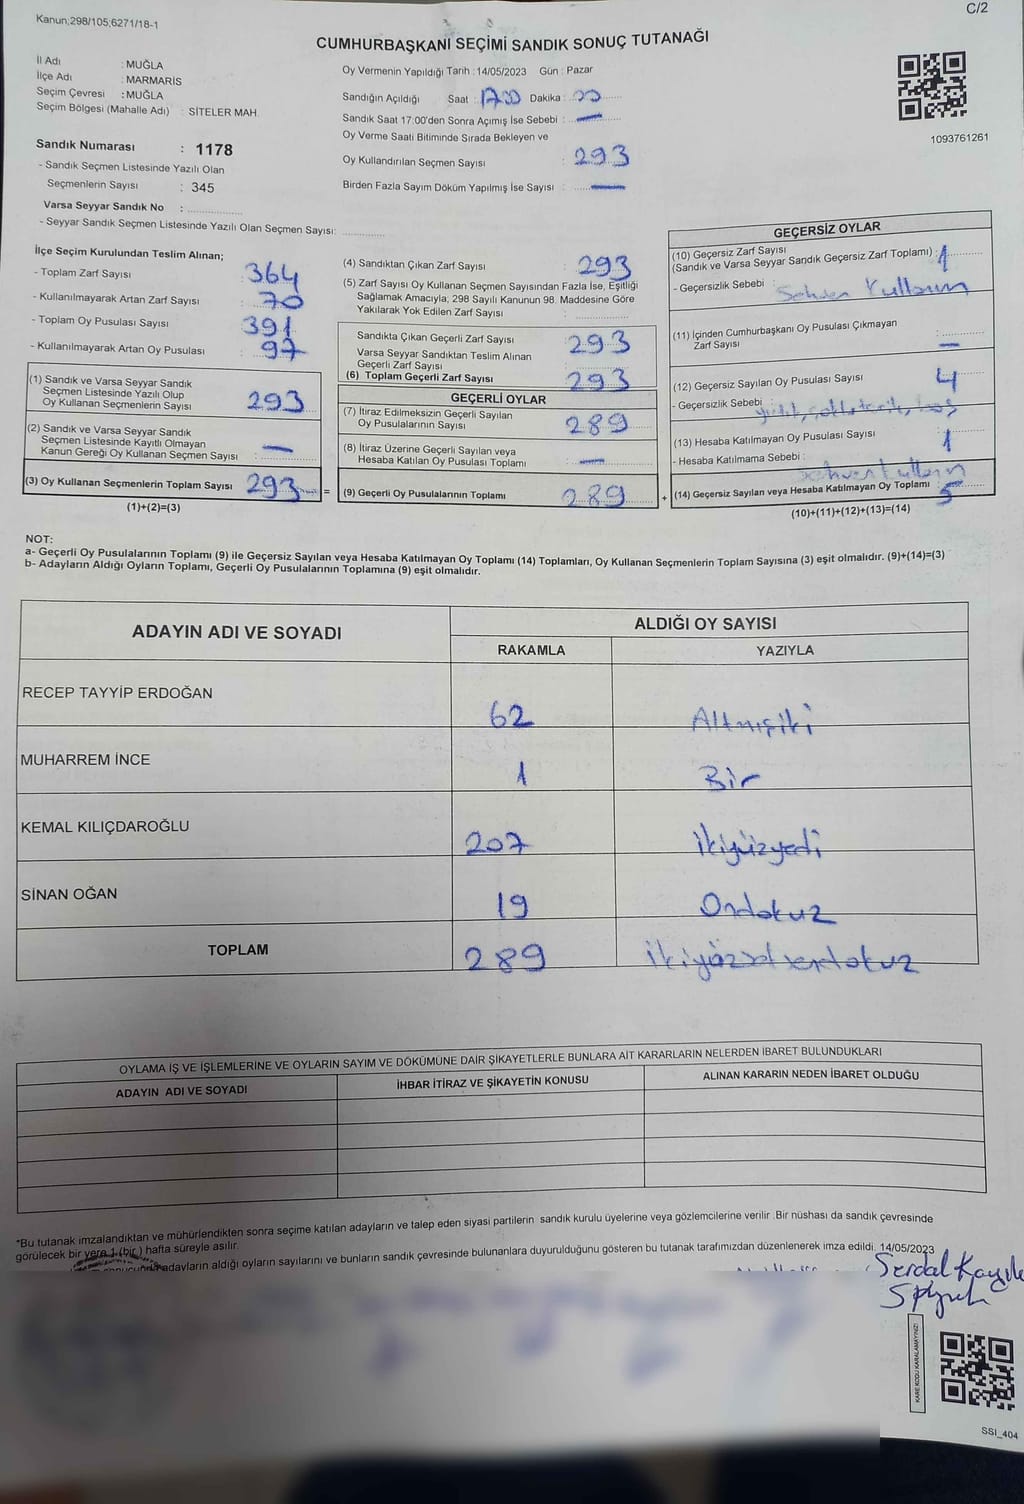 Kanun;298/105;6271/18-1
C/2
CUMHURBAŞKANI SEÇİMİ SANDIK SONUÇ TUTANAĞI
İl Adı : MUĞLA
İlçe Adı : MARMARİS
Seçim Çevresi : MUĞLA
Seçim Bölgesi (Mahalle Adı) : SİTELER MAH.
Sandık Numarası : 1178
- Sandık Seçmen Listesinde Yazılı Olan
Seçmenlerin Sayısı : 345
Varsa Seyyar Sandık No :
- Seyyar Sandık Seçmen Listesinde Yazılı Olan Seçmen Sayısı:
Oy Vermenin Yapıldığı Tarih : 14/05/2023 Gün : Pazar
Sandığın Açıldığı Saat : 17.00 Dakika : 00
Sandık Saat 17:00'den Sonra Açımış İse Sebebi : —
Oy Verme Saati Bitiminde Sırada Bekleyen ve
Oy Kullandırılan Seçmen Sayısı : 293
Birden Fazla Sayım Döküm Yapılmış İse Sayısı : —
1093761261
İlçe Seçim Kurulundan Teslim Alınan;
- Toplam Zarf Sayısı : 364
- Kullanılmayarak Artan Zarf Sayısı : 70
- Toplam Oy Pusulası Sayısı : 391
- Kullanılmayarak Artan Oy Pusulası : 97
(1) Sandık ve Varsa Seyyar Sandık
Seçmen Listesinde Yazılı Olup
Oy Kullanan Seçmenlerin Sayısı : 293
(2) Sandık ve Varsa Seyyar Sandık
Seçmen Listesinde Kayıtlı Olmayan
Kanun Gereği Oy Kullanan Seçmen Sayısı : —
(3) Oy Kullanan Seçmenlerin Toplam Sayısı : 293 =
(1)+(2)=(3)
(4) Sandıktan Çıkan Zarf Sayısı : 293
(5) Zarf Sayısı Oy Kullanan Seçmen Sayısından Fazla İse, Eşitliği
Sağlamak Amacıyla, 298 Sayılı Kanunun 98. Maddesine Göre
Yakılarak Yok Edilen Zarf Sayısı :
Sandıkta Çıkan Geçerli Zarf Sayısı : 293
Varsa Seyyar Sandıktan Teslim Alınan
Geçerli Zarf Sayısı :
(6) Toplam Geçerli Zarf Sayısı : 293
GEÇERLİ OYLAR
(7) İtiraz Edilmeksizin Geçerli Sayılan
Oy Pusulalarının Sayısı : 289
(8) İtiraz Üzerine Geçerli Sayılan veya
Hesaba Katılan Oy Pusulası Toplamı : —
(9) Geçerli Oy Pusulalarının Toplamı : 289 +
GEÇERSİZ OYLAR
(10) Geçersiz Zarf Sayısı
(Sandık ve Varsa Seyyar Sandık Geçersiz Zarf Toplamı) : 1
- Geçersizlik Sebebi : Sehven Kullanım
(11) İçinden Cumhurbaşkanı Oy Pusulası Çıkmayan
Zarf Sayısı : —
(12) Geçersiz Sayılan Oy Pusulası Sayısı : 4
- Geçersizlik Sebebi :
(13) Hesaba Katılmayan Oy Pusulası Sayısı : 1
- Hesaba Katılmama Sebebi : Sehven kullanım
(14) Geçersiz Sayılan veya Hesaba Katılmayan Oy Toplamı : 5
(10)+(11)+(12)+(13)=(14)
NOT:
a- Geçerli Oy Pusulalarının Toplamı (9) ile Geçersiz Sayılan veya Hesaba Katılmayan Oy Toplamı (14) Toplamları, Oy Kullanan Seçmenlerin Toplam Sayısına (3) eşit olmalıdır. (9)+(14)=(3)
b- Adayların Aldığı Oyların Toplamı, Geçerli Oy Pusulalarının Toplamına (9) eşit olmalıdır.
ADAYIN ADI VE SOYADI ALDIĞI OY SAYISI
RAKAMLA YAZIYLA
RECEP TAYYİP ERDOĞAN 62 Altmışiki
MUHARREM İNCE 1 Bir
KEMAL KILIÇDAROĞLU 207 ikiyüzyedi
SİNAN OĞAN 19 Ondokuz
TOPLAM 289 ikiyüzseksendokuz
OYLAMA İŞ VE İŞLEMLERİNE VE OYLARIN SAYIM VE DÖKÜMÜNE DAİR ŞİKAYETLERLE BUNLARA AİT KARARLARIN NELERDEN İBARET BULUNDUKLARI
ADAYIN ADI VE SOYADI İHBAR İTİRAZ VE ŞİKAYETİN KONUSU ALINAN KARARIN NEDEN İBARET OLDUĞU
*Bu tutanak imzalandıktan ve mühürlendikten sonra seçime katılan adayların ve talep eden siyasi partilerin sandık kurulu üyelerine veya gözlemcilerine verilir .Bir nüshası da sandık çevresinde
görülecek bir yere 1 (bir ) hafta süreyle asılır.
adayların aldığı oyların sayılarını ve bunların sandık çevresinde bulunanlara duyurulduğunu gösteren bu tutanak tarafımızdan düzenlenerek imza edildi. 14/05/2023
Serdal
KARE KODU KARALAMAYINIZ!
SSI_404